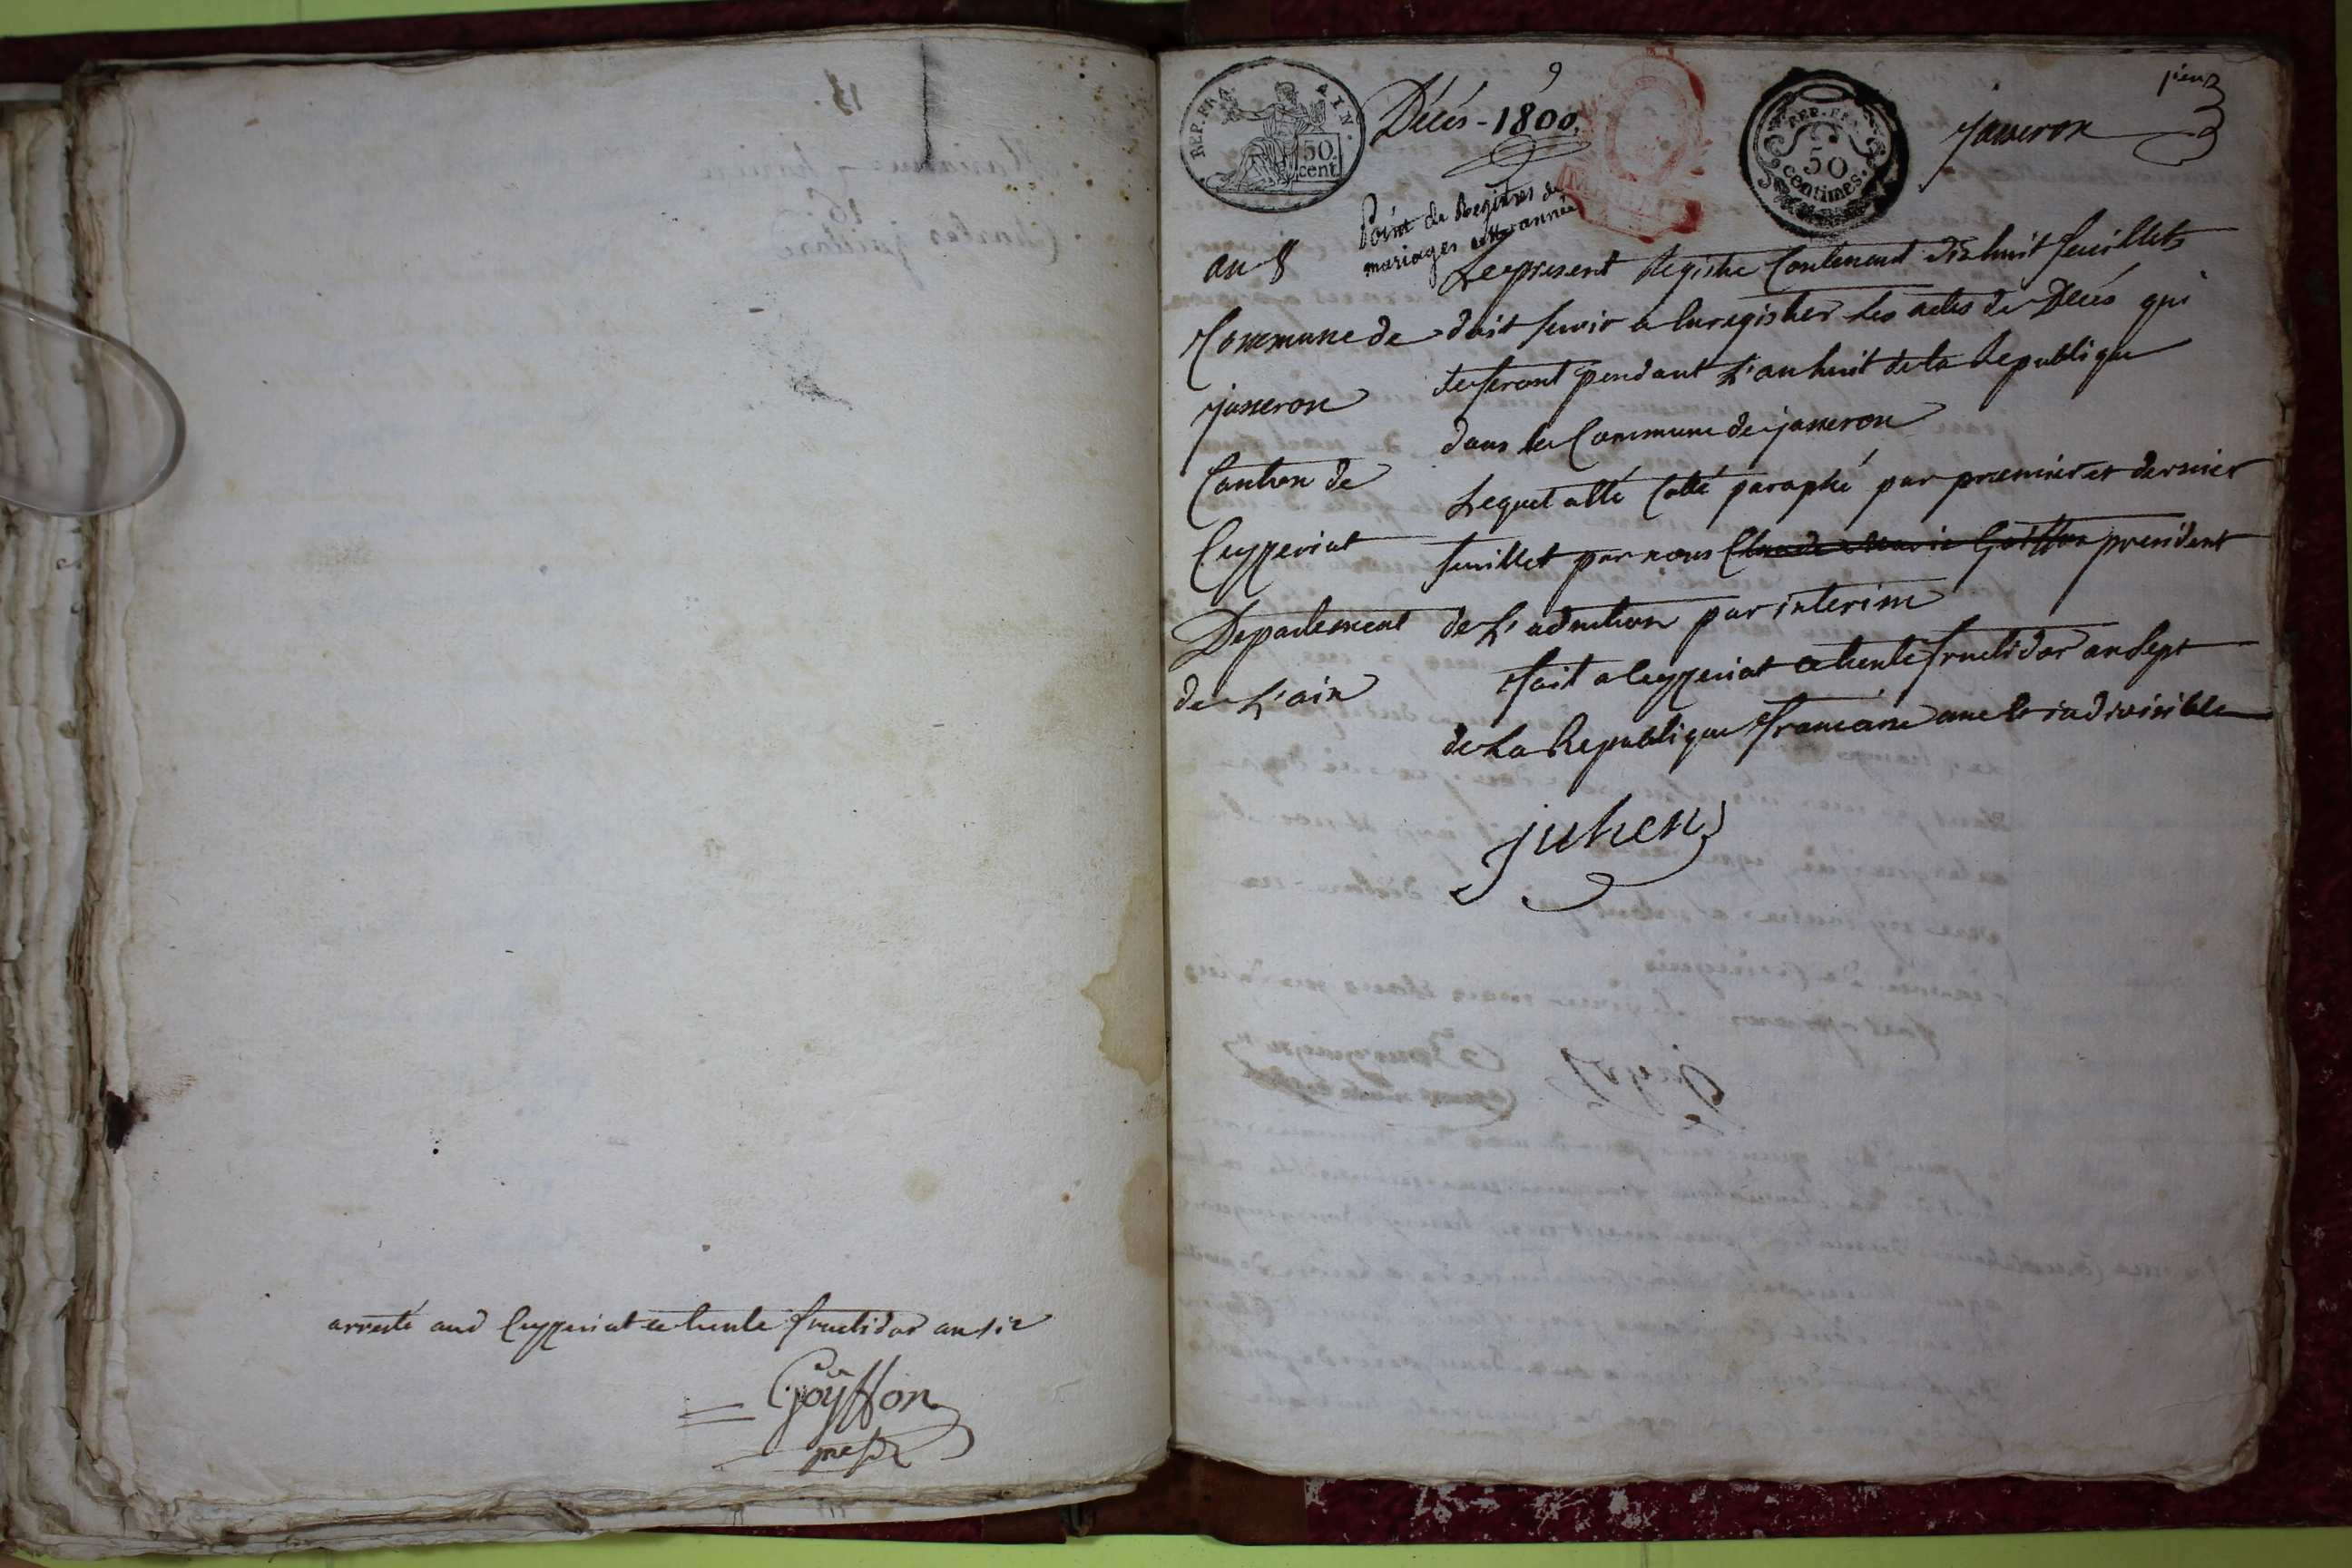 arresté aud Ceyzeriat ce trente fructidor an six
Goÿffon
presdt
REP. FRA. AIN.
50 cent.
Décés - 1800.
REP. FRA.
50
centimes.
1ier
jasseron
Point de Registres de
mariages cette année
an 8
Commune de
jasseron
Canton de
Ceyzeriat
Departement
de L'ain
Le present Registre Contenant dix huit feuillets
doit servir a Enregistrer Les actes de Décés qui
se feront pendant L'an huit de la Republique
dans la Commune de jasseron
Lequel a été Cotté paraphé par premier et dernier
feuillet par nous Claude Marie Goiffon president
de L'admtion par interim
fait a Ceyzeriat ce trente fructidor an Sept
de La Republique francaise une et indivisible
juhen